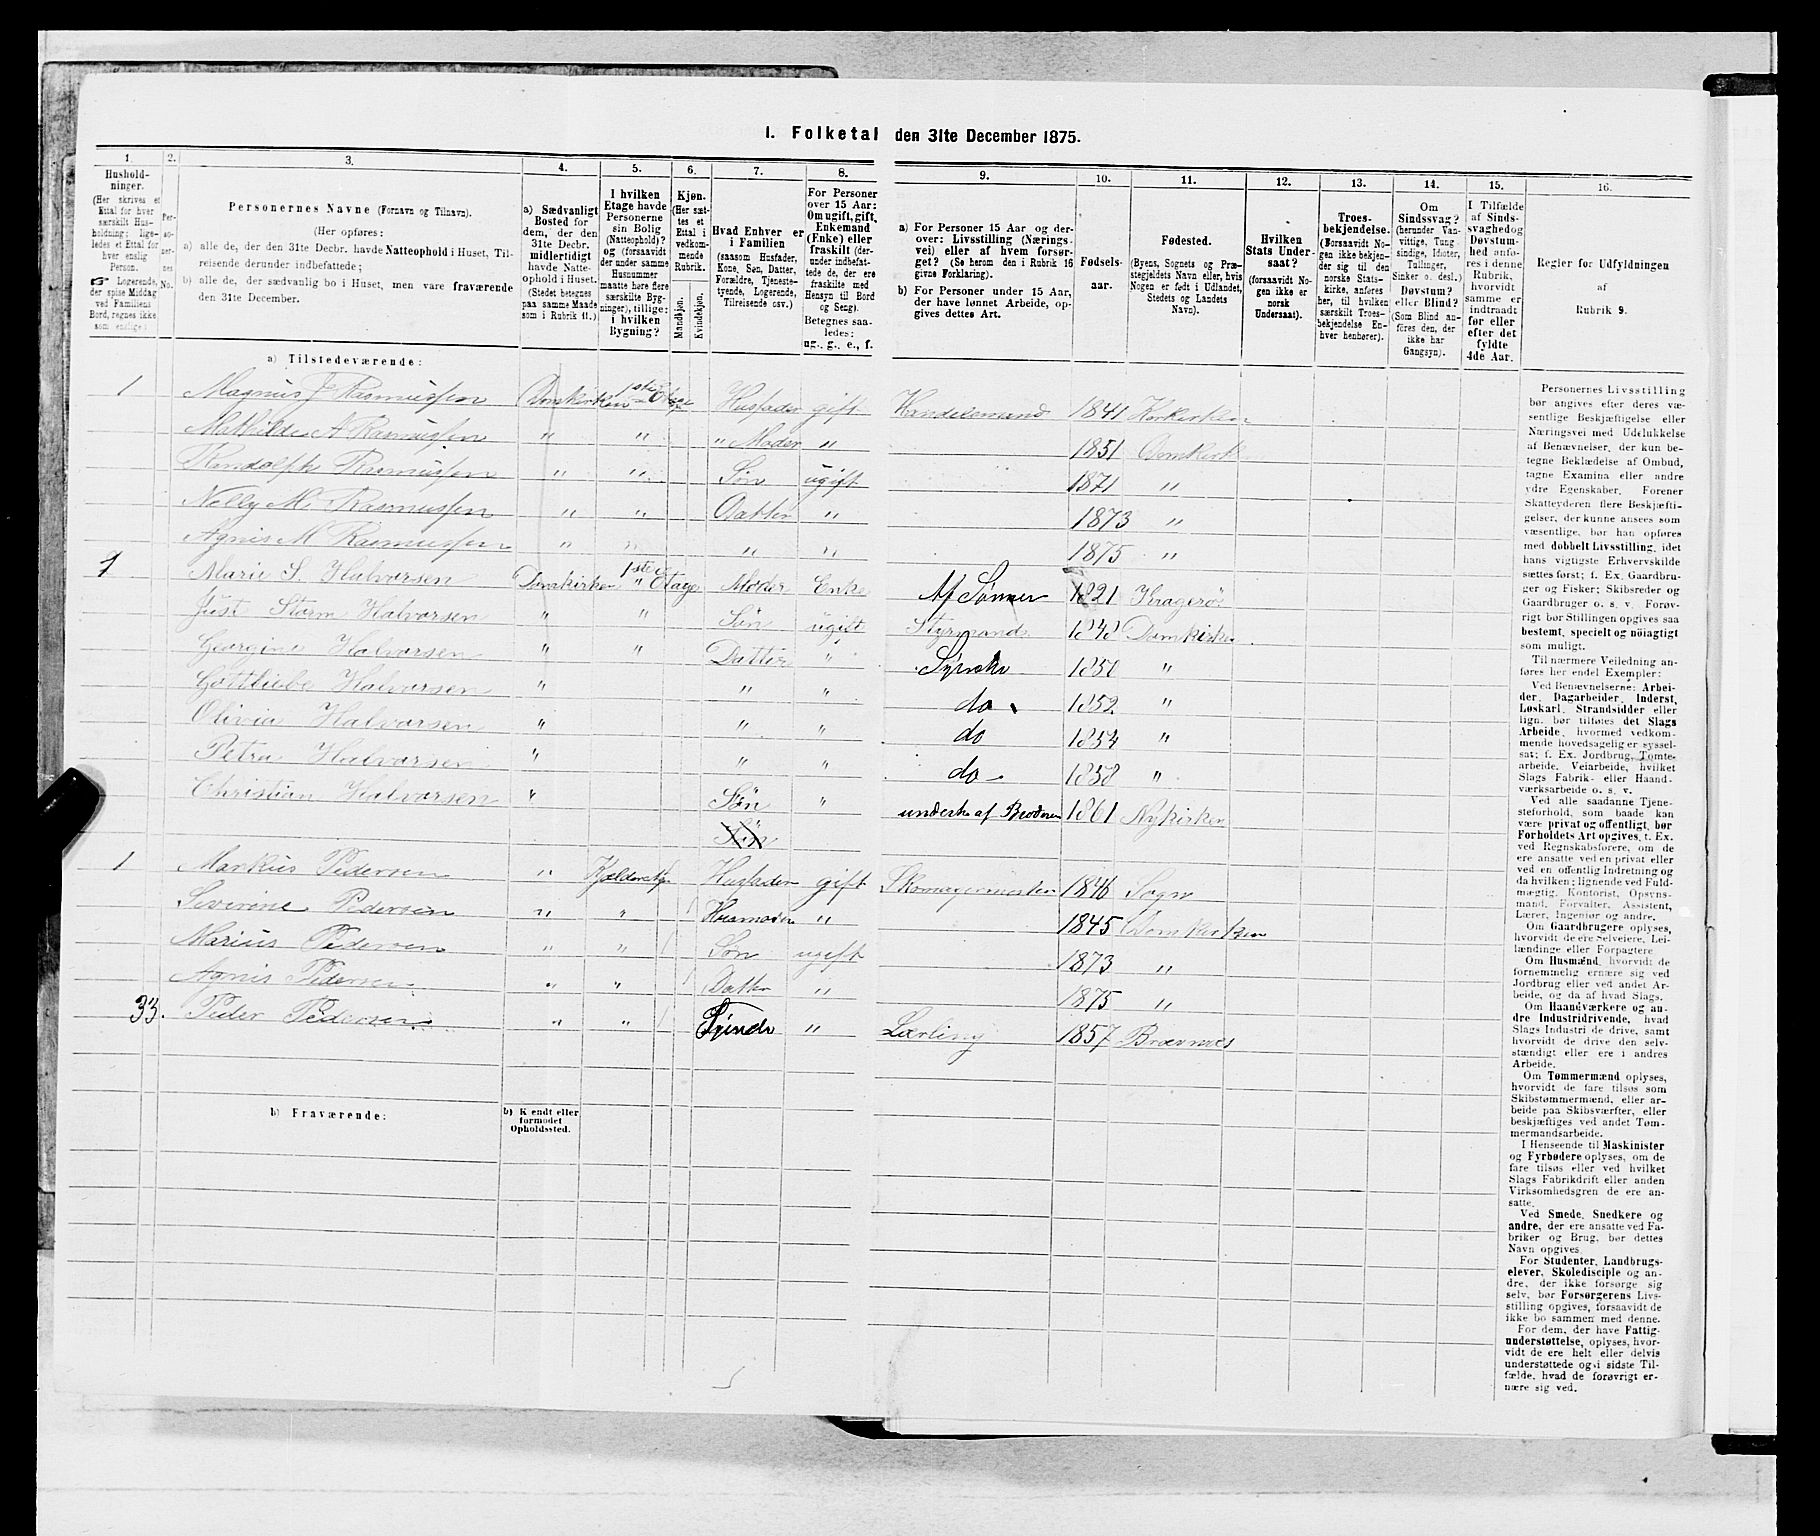 I. Folketal den 31te December 1875.
1. 2. 3. 4. 5. 6. 7. 8. 9. 10. 11. 12. 13. 14. 15. 16.
Hushold-
ninger.
(Her skrives et
Ettal for hver
særskilt Hus-
holdning; lige-
ledes et Ettal for
hver enslig
Person.
☞ Logerende,
der spise Middag
ved Familiens
Bord, regnes ikke
som enslige.)
Per-
so-
ner-
nes
No.
Personernes Navne (Fornavn og Tilnavn).
(Her opføres:
a) alle de, der den 31te Decbr. havde Natteophold i Huset, Til-
reisende derunder indbefattede;
b) alle de, der sædvanlig bo i Huset, men vare fraværende
den 31te December.
a) Sædvanligt
Bosted for
dem, der den
31te Decbr.
midlertidigt
havde Natte-
ophold i Huset.
(Stedet betegnes
paa samme Maade
som i Rubrik 11.)
I hvilken
Etage havde
Personerne
sin Bolig
(Natteophold)?
og (forsaavidt
der under samme
Husnummer
maatte høre flere
særskilte Byg-
ninger), tillige:
i hvilken
Bygning?
Kjøn.
(Her sæt-
tes et
Ettal i
vedkom-
mende
Rubrik.
Mandkjøn.
Kvindekjøn.
Hvad Enhver er
i Familien
(saasom Husfader,
Kone, Søn, Datter,
Forældre, Tjeneste-
tyende, Logerende,
Tilreisende osv.)
For Personer
over 15 Aar:
Om ugift, gift,
Enkemand
(Enke) eller
fraskilt (der-
under indbefat-
tede de, der ere
fraskilte med
Hensyn til Bord
og Seng).
Betegnes saa-
ledes:
ug., g., e., f.
a) For Personer 15 Aar og der-
over: Livsstilling (Nærings-
vei) eller af hvem forsør-
get? (Se herom den i Rubrik 16
givne Forklaring).
b) For Personer under 15 Aar,
der have lønnet Arbeide, op-
gives dettes Art.
Fødsels-
aar.
Fødested.
(Byens, Sognets og Præ-
stegjeldets Navn eller, hvis
Nogen er født i Udlandet,
Stedets og Landets
Navn).
Hvilken
Stats Under-
saat?
(forsaavidt No-
gen ikke er
norsk
Undersaat).
Troes-
bekjendelse.
(Forsaavidt No-
gen ikke bekjen-
der sig til den
norske Stats-
kirke, anføres
her, til hvilken
særskilt Troes-
bekjendelse En-
hver henhører).
Om
Sindssvag?
(herunder Van-
vittige, Tung-
sindige, Idioter,
Tullinger,
Sinker o. desl.)
Døvstum?
eller Blind?
(Som Blind an-
føres den, der
ikke har
Gangsyn).
I Tilfælde
af Sinds-
svaghed og
Døvstum-
hed anføres
i denne
Rubrik,
hvorvidt
samme er
indtraadt
før eller
efter det
fyldte
4de Aar.
Regler for Udfyldningen
af
Rubrik 9.
a) Tilstedeværende:
1 Magnus J Rasmussen Domkirken 1ste Etage Husfader gift Handelsmand 1841 Korskirken
Mathilde A Rasmussen " " " Moder " 1851 Domkirk
Randolph Rasmussen " " Søn ugift 1871 "
Nelly M. Rasmussen " " Datter " 1873 "
Agnis M Rasmussen " " " " 1875 "
1 Marie S. Halvorsen Domkirken 1ste " Etage Moder Enke Af Sønner 1821 Kragerö
Just Storm Halvorsen " " Søn ugift Styrmand 1848 Domkirken
Georgine Halvorsen " " Datter " Syerske 1850 "
Gottliebe Halvorsen " " " do 1852 "
Olivia Halvorsen " " " do 1854 "
Petra Halvorsen " " " do 1858 "
Christian Halvorsen " Søn " underh. af Broderen 1861 Nykirken
Søn
1 Markus Pedersen " Kjælderetg Husfader gift Skomagermester 1846 Sogn
Severine Pedersen " " Husmoder " 1845 Domkirken
Marius Pedersen " " Søn ugift 1873 "
Agnis Pedersen " " Datter " 1875 "
33. Peder Pedersen " " Tjende " Lærling 1857
b) Fraværende:
b) Kjendt eller
formodet
Opholdssted.
Personernes Livsstilling
bør angives efter deres væ-
sentlige Beskjæftigelse eller
Næringsvei med Udelukkelse
af Benævnelser, der kun be-
tegne Beklædelse af Ombud,
tagne Examina eller andre
ydre Egenskaber. Forener
Skatteyderen flere Beskjæfti-
gelser, der kunne ansees som
væsentlige, bør han opføres
med dobbelt Livsstilling, idet
hans vigtigste Erhvervskilde
sættes først; f. Ex. Gaardbru-
ger og Fisker; Skibsreder og
Gaardbruger o. s. v. Forøv-
rigt bør Stillingen opgives saa
bestemt, specielt og nöiagtigt
som muligt.
Til nærmere Veiledning an-
føres her endel Exempler:
Ved Benævnelserne: Arbei-
der, Dagarbeider, Inderst,
Løskarl, Strandsidder eller
lign. bør tilføies det Slags
Arbeide, hvormed vedkom-
mende hovedsagelig er syssel-
sat; f. Ex. Jordbrug, Tomte-
arbeide, Veiarbeide, hvilket
Slags Fabrik- eller Haand-
værksarbeide o. s. v.
Ved alle saadanne Tjene-
steforhold, som baade kan
være privat og offentligt, bør
Forholdets Art opgives, t. Ex.
ved Regnskabsførere, om de
ere ansatte ved en privat eller
ved en offentlig Indretning og
da hvilken; lignende ved Fuld-
mægtig, Kontorist, Opsyns-
mand, Forvalter, Assistent,
Lærer, Ingeniør og andre.
Om Gaardbrugere oplyses,
hvorvidt de ere Selveiere, Lei-
lændinge eller Forpagtere
Om Husmænd, hvorvidt de
fornemmelig ernære sig ved
Jordbrug eller ved andet Ar-
beide, og da af hvad Slags.
Om Haandværkere og an-
dre Industridrivende, hvad
Slags Industri de drive, samt
hvorvidt de drive den selv-
stændigt eller ere i andres
Arbeide.
Om Tømmermænd oplyses,
hvorvidt de fare tilsøs som
Skibstømmermænd, eller ar-
beide paa Skibsværfter, eller
beskjæftiges ved andet Tøm-
mermandsarbeide.
I Henseende til Maskinister
og Fyrbødere oplyses, om de
fare tilsøs eller ved hvilket
Slags Fabrikdrift eller anden
Virksomhedsgren de ere an-
satte.
Ved Smede, Snedkere og
andre, der ere ansatte ved Fa-
briker og Brug, bør dettes
Navn opgives.
For Studenter, Landbrugs-
elever, Skoledisciple og an-
dre, der ikke forsørge sig
selv, bør Forsørgerens Livs-
stilling opgives, forsaavidt de
ikke bo sammen med denne.
For dem, der have Fattig-
understøttelse, oplyses, hvor-
vidt de ere helt eller delvis
understøttede og i sidste Til-
fælde, hvad de forøvrigt er-
nære sig ved.